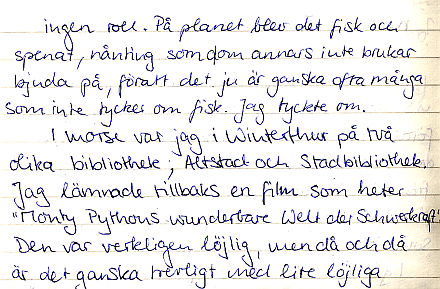 ingen roll. På planet blev det fisk och
spenat, nånting som dom annars inte brukar
bjuda på, föratt det ju är ganska ofta många
som inte tycker om fisk. Jag tyckte om.
I morse var jag i Winterthur på två
olika bibliothek, Altstadt och Stadbibliothek.
Jag lämnade tillbaks en film som heter
"Monty Pythons wunderbare Welt der Schwerkraft"
Den var verkligen löjlig, men då och då
är det ganska trevligt med lite löjliga